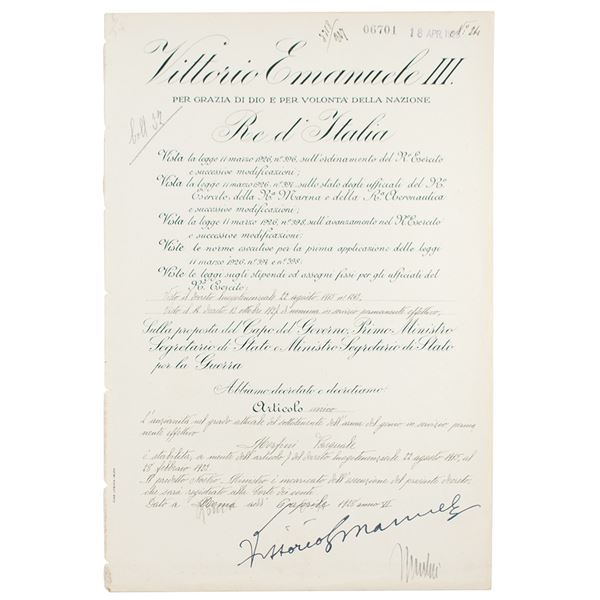 06701 18 APR. 1928 Nº 24
Boll 32
Vittorio Emanuele III.
PER GRAZIA DI DIO E PER VOLONTÀ DELLA NAZIONE
Re d'Italia
Vista la legge 11 marzo 1926, nº 396, sull'ordinamento del Rº Esercito
e successive modificazioni;
Vista la legge 11 marzo 1926, nº 397, sullo stato degli ufficiali del Rº
Esercito, della Rª Marina e della Rª Aeronautica
e successive modificazioni;
Vista la legge 11 marzo 1926, nº 398, sull'avanzamento nel Rº Esercito
e successive modificazioni;
Viste le norme esecutive per la prima applicazione delle leggi
11 marzo 1926, nº 397 e nº 398;
Viste le leggi sugli stipendi ed assegni fissi per gli ufficiali del
Rº Esercito;
Visto il decreto luogotenenziale 22 agosto 1915 nº
Visto il R. decreto 13 ottobre 1927 di nomina in servizio permanente effettivo;
Sulla proposta del Capo del Governo, Primo Ministro
Segretario di Stato e Ministro Segretario di Stato
per la Guerra
Abbiamo decretato e decretiamo:
Articolo unico
L'anzianità nel grado attuale del sottotenente dell'arma del genio in servizio perma
nente effettivo
Pasquale
è stabilita, a mente dell'articolo 7 del decreto luogotenenziale 22 agosto 1915, al
28 febbraio 1923.
Il predetto Nostro Ministro è incaricato dell'esecuzione del presente decreto,
che sarà registrato alla Corte dei conti.
Dato a Roma addì 6 aprile 1928 anno VI
Vittorio Emanuele